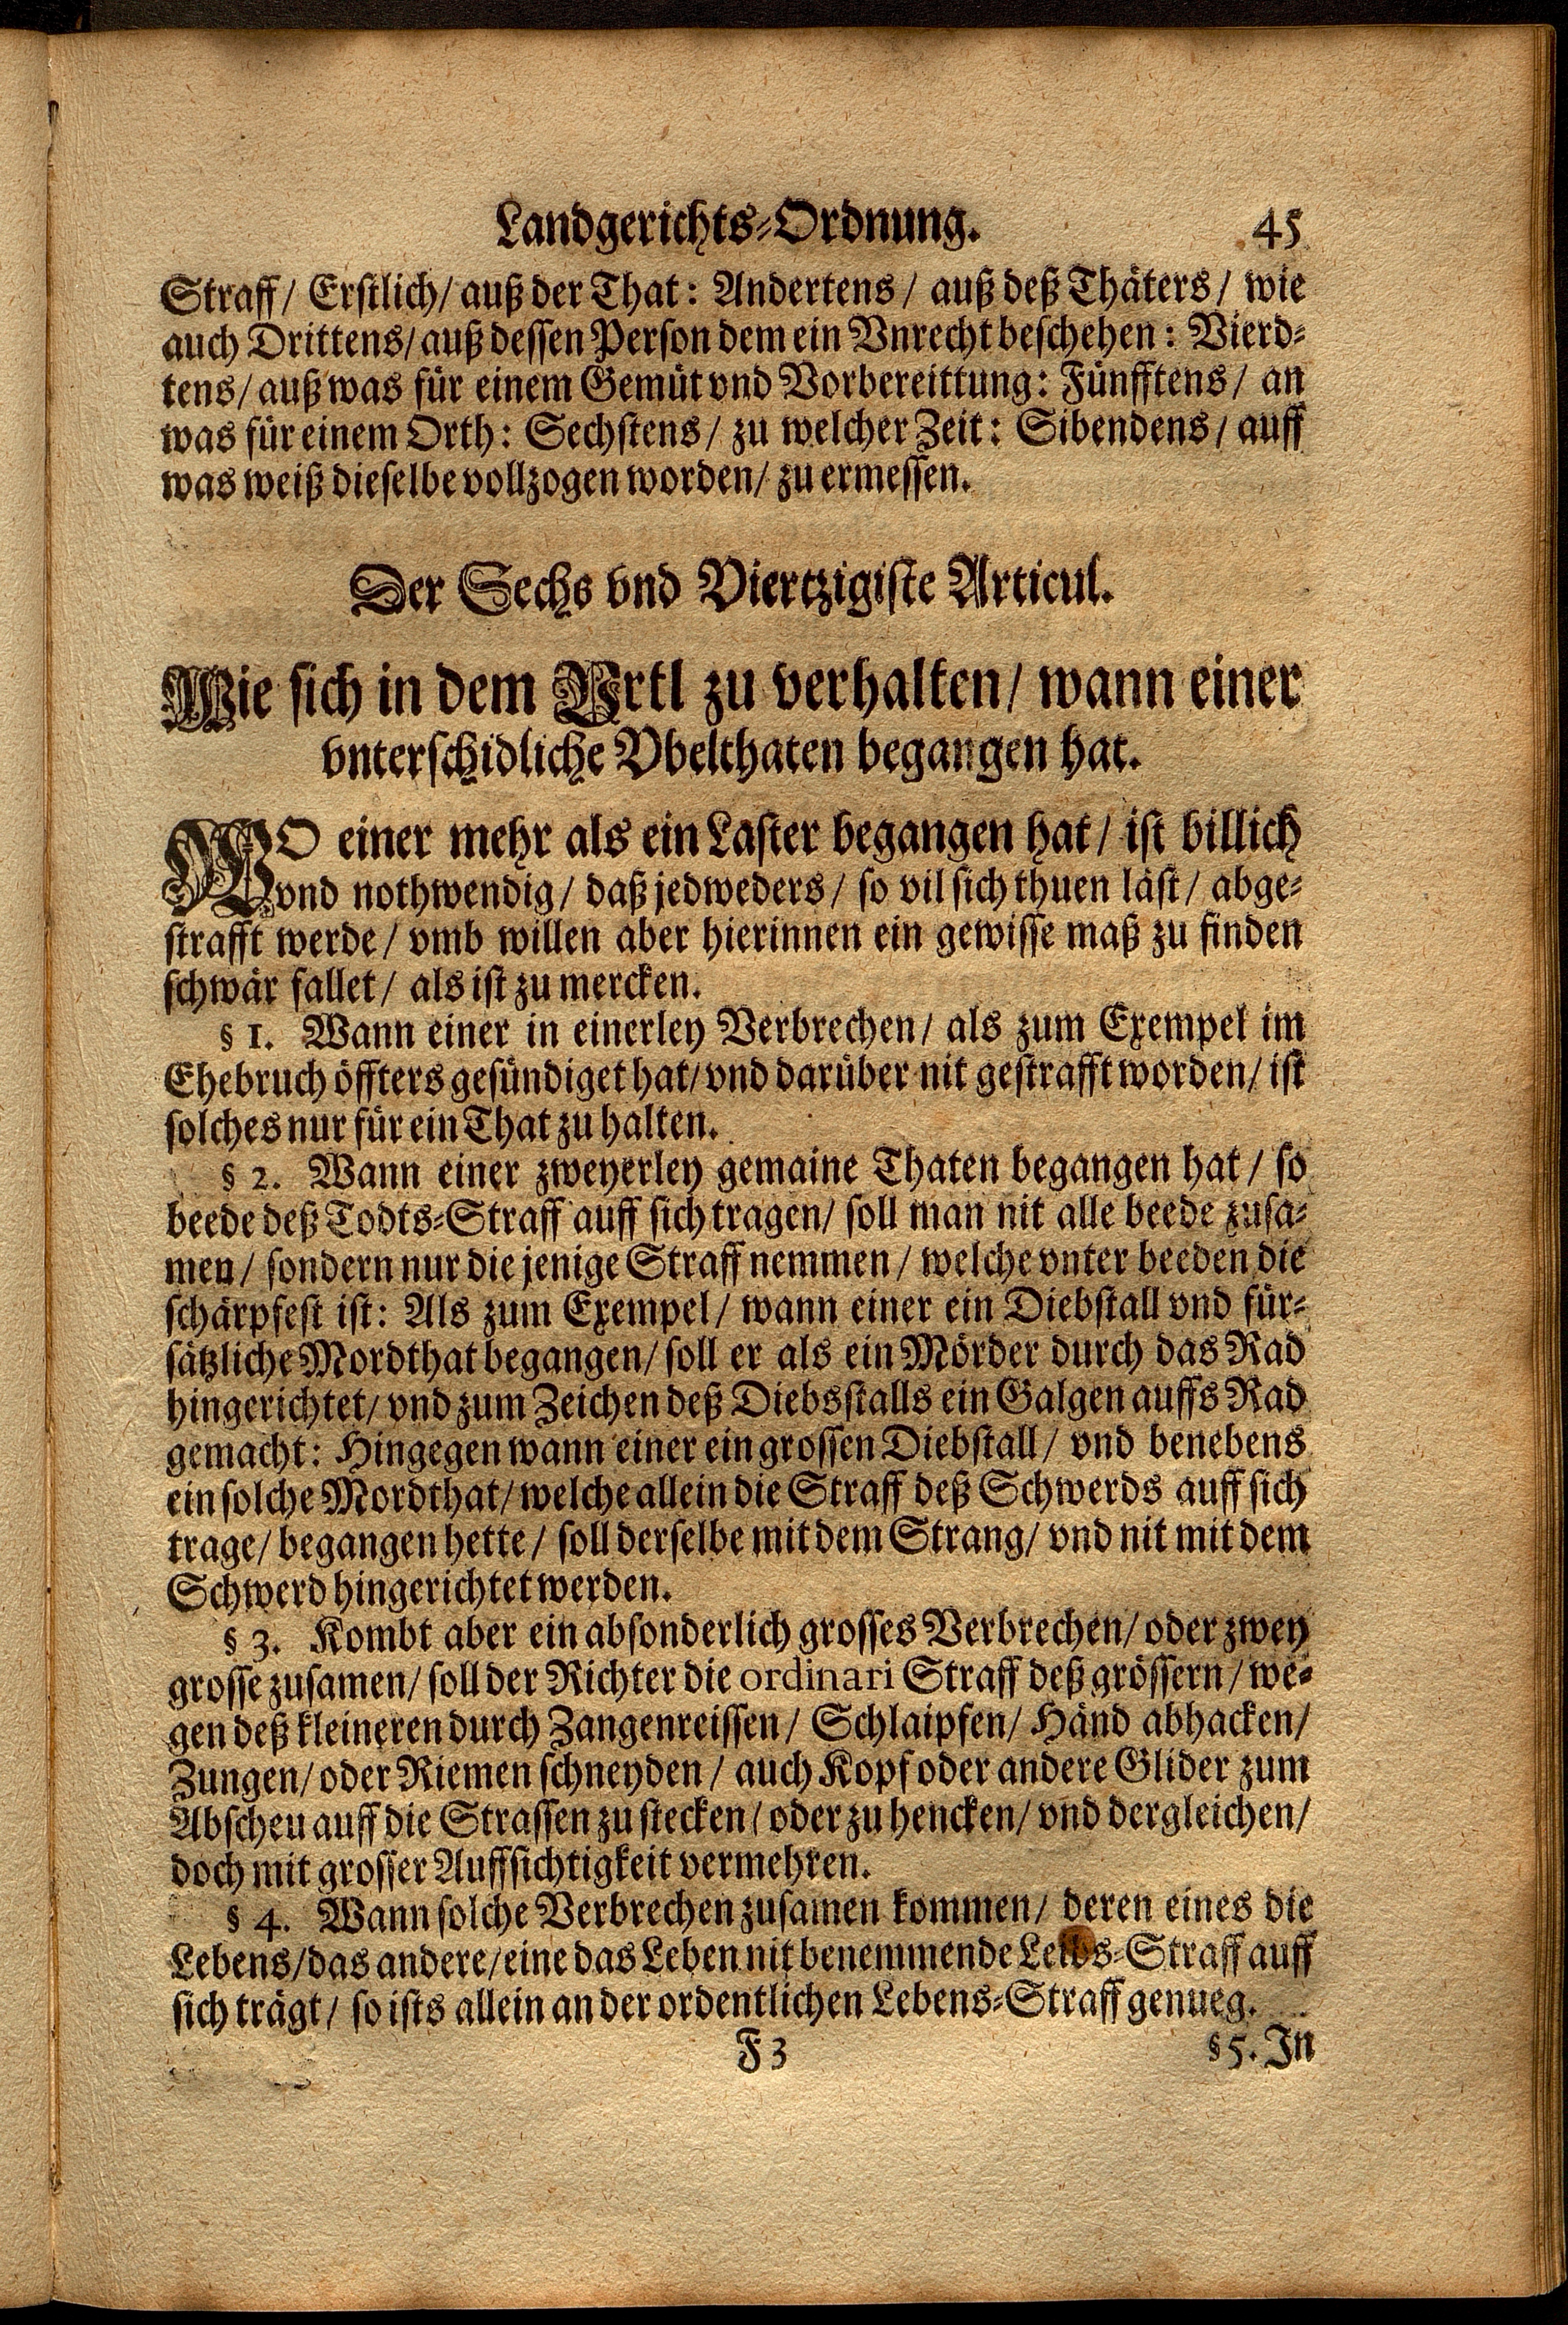 Landgerichts-Ordnung. 45
Straff/ Erstlich/ auß der That: Andertens/ auß deß Thäters/ wie
auch Drittens/ auß dessen Person dem ein Vnrecht beschehen: Vierd-
tens/ auß was für einem Gemüt vnd Vorbereittung: Fünfftens/ an
was für einem Orth: Sechstens/ zu welcher Zeit: Sibendens/ auff
was weiß dieselbe vollzogen worden/ zu ermessen.
Der Sechs vnd Viertzigiste Articul.
Wie sich in dem Vrtl zu verhalten/ wann einer
vnterschidliche Vbelthaten begangen hat.
WO einer mehr als ein Laster begangen hat/ ist billich
vnd nothwendig/ daß jedweders/ so vil sich thuen läst/ abge-
strafft werde/ vmb willen aber hierinnen ein gewisse maß zu finden
schwär fallet/ als ist zu mercken.
§ 1. Wann einer in einerley Verbrechen/ als zum Exempel im
Ehebruch öffters gesündiget hat/ vnd darüber nit gestrafft worden/ ist
solches nur für ein That zu halten.
§ 2. Wann einer zweyerley gemaine Thaten begangen hat/ so
beede deß Todts-Straff auff sich tragen/ soll man nit alle beede zusa-
men/ sondern nur die jenige Straff nemmen/ welche vnter beeden die
schärpfest ist: Als zum Exempel/ wann einer ein Diebstall vnd für-
sätzliche Mordthat begangen/ soll er als ein Mörder durch das Rad
hingerichtet/ vnd zum Zeichen deß Diebsstalls ein Galgen auffs Rad
gemacht: Hingegen wann einer ein grossen Diebstall/ vnd benebens
ein solche Mordthat/ welche allein die Straff deß Schwerds auff sich
trage/ begangen hette/ soll derselbe mit dem Strang/ vnd nit mit dem
Schwerd hingerichtet werden.
§ 3. Kombt aber ein absonderlich grosses Verbrechen/ oder zwey
grosse zusamen/ soll der Richter die ordinari Straff deß grössern/ we-
gen deß kleineren durch Zangenreissen/ Schlaipfen/ Händ abhacken/
Zungen/ oder Riemen schneyden/ auch Kopf oder andere Glider zum
Abscheu auff die Strassen zu stecken/ oder zu hencken/ vnd dergleichen/
doch mit grosser Auffsichtigkeit vermehren.
§ 4. Wann solche Verbrechen zusamen kommen/ deren eines die
Lebens/ das andere/ eine das Leben nit benemmende Leibs-Straff auff
sich trägt/ so ists allein an der ordentlichen Lebens-Straff genueg.
F 3 § 5. In